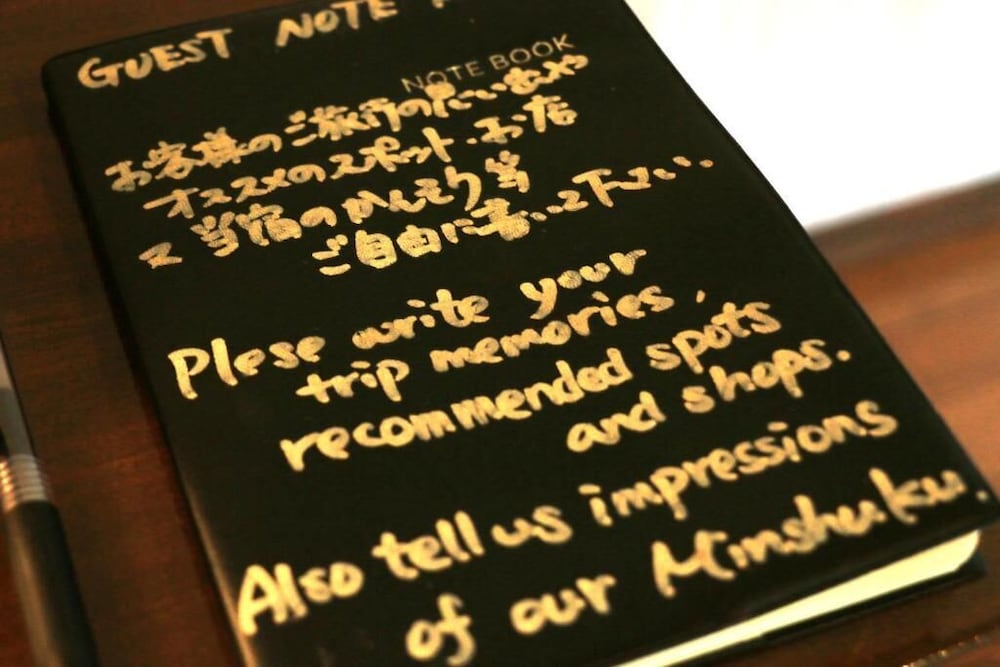 GUEST NOTE
NOTE BOOK
お客様のご旅行の思い出や
オススメのスポット・お店
当宿のかんそう等
ご自由に書いて下さい。
Plese write your
trip memories,
recommended spots
and shops.
Also tell us impressions
of our Minshuku.